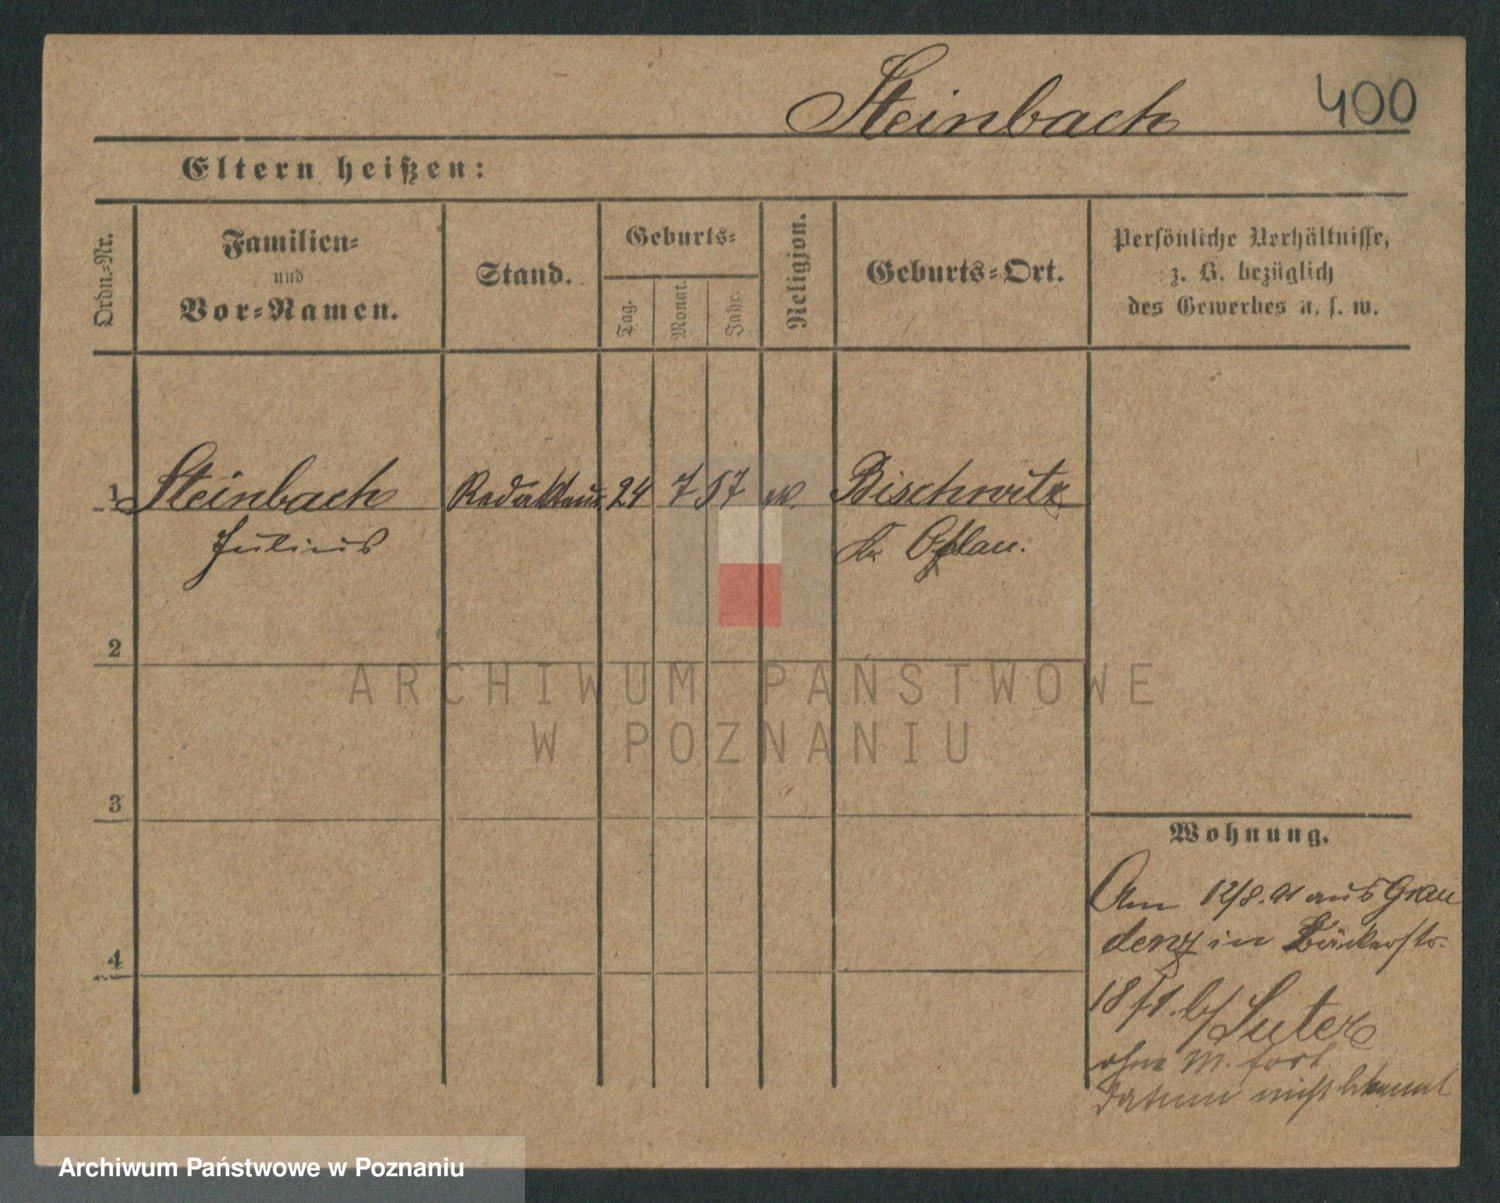 Steinbach 400
Eltern heißen:
Ordn.-Nr.
Familien-
und
Vor-Namen.
Stand.
Geburts-
Tag.
Monat.
Jahr.
Religion.
Geburts-Ort.
Persönliche Verhältnisse,
z. B. bezüglich
des Gewerbes u. s. w.
1 Steinbach Redakteur 24 7 57 ev. Bischwitz
Julius Kr Ohlau.
2
3
4
Wohnung.
Am 12/8. 91 aus Grau
denz in Bäckerstr.
18 b/ Suter
ohne M. fort
Datum nicht bekannt
ARCHIWUM PAŃSTWOWE
W POZNANIU
Archiwum Państwowe w Poznaniu